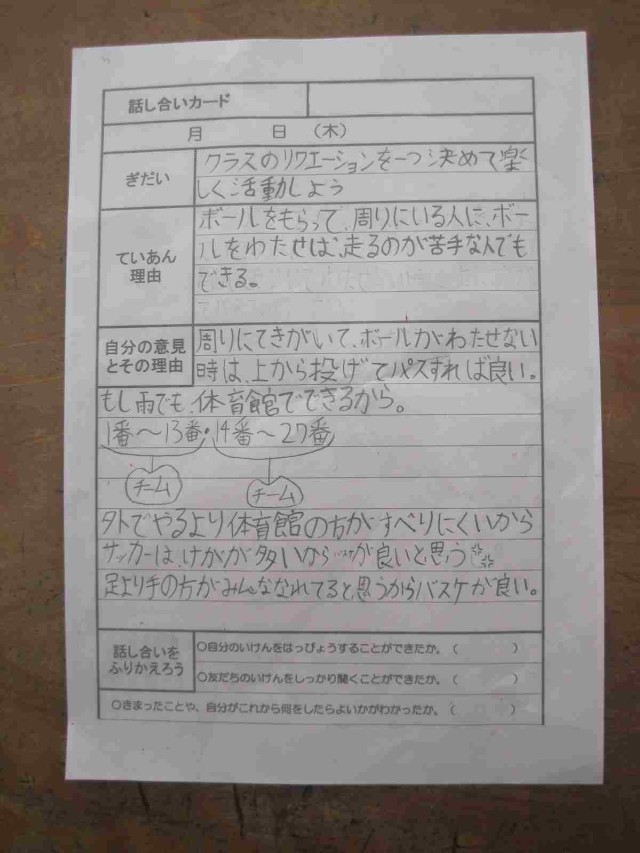 話し合いカード
月 日 (木)
ぎだい
クラスのリクエーションを一つ決めて楽
しく活動しよう
ていあん
理由
ボールをもらって、周りにいる人に、ボー
ルをわたせば、走るのが苦手な人でも
できる。
自分の意見
とその理由
周りにてきがいて、ボールがわたせない
時は、上から投げてパスすれば良い。
もし雨でも、体育館でできるから。
1番〜13番・14番〜27番
チーム チーム
外でやるより体育館の方がすべりにくいから
サッカーは、けがが多いからバスケが良いと思う
足より手の方がみんななれてると思うからバスケが良い。
話し合いを
ふりかえろう
○自分のいけんをはっぴょうすることができたか。( )
○友だちのいけんをしっかり聞くことができたか。( )
○きまったことや、自分がこれから何をしたらよいかがわかったか。( )